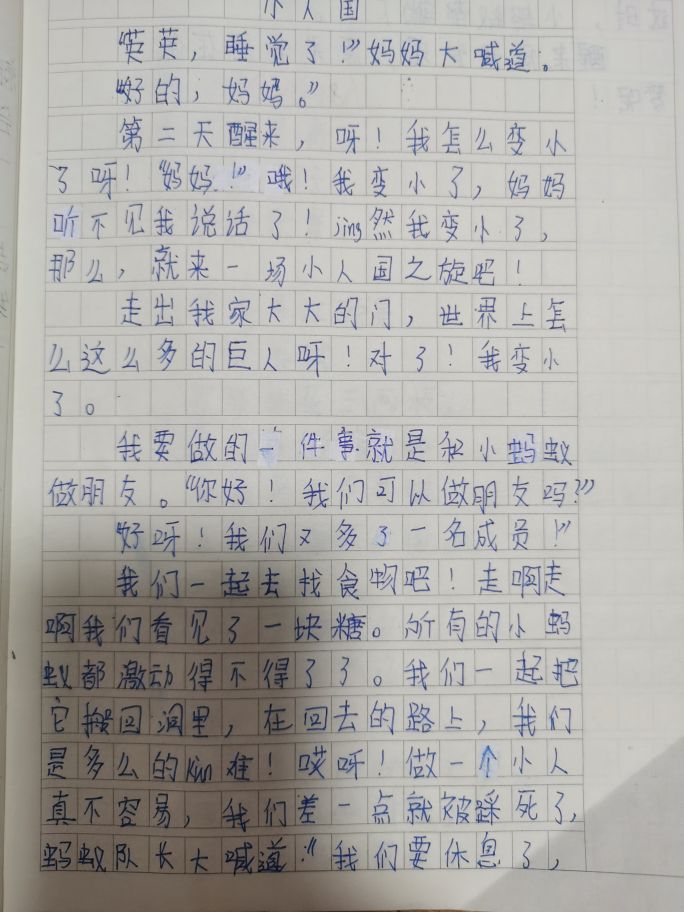 小人国
“英英，睡觉了！”妈妈大喊道。
“好的，妈妈。”
第二天醒来，呀！我怎么变小
了呀！“妈妈！”哦！我变小了，妈妈
听不见我说话了！jing然我变小了，
那么，就来一场小人国之旋吧！
走出我家大大的门，世界上怎
么这么多的巨人呀！对了！我变小
了。
我要做的一件事就是和小蚂蚁
做朋友。“你好！我们可以做朋友吗？”
“好呀！我们又多了一名成员！”
我们一起去找食物吧！走啊走
啊我们看见了一块糖。所有的小蚂
蚁都激动得不得了了。我们一起把
它搬回洞里，在回去的路上，我们
是多么的kùn难！哎呀！做一个小人
真不容易，我们差一点就被踩死了，
蚂蚁队长大喊道：“我们要休息了，